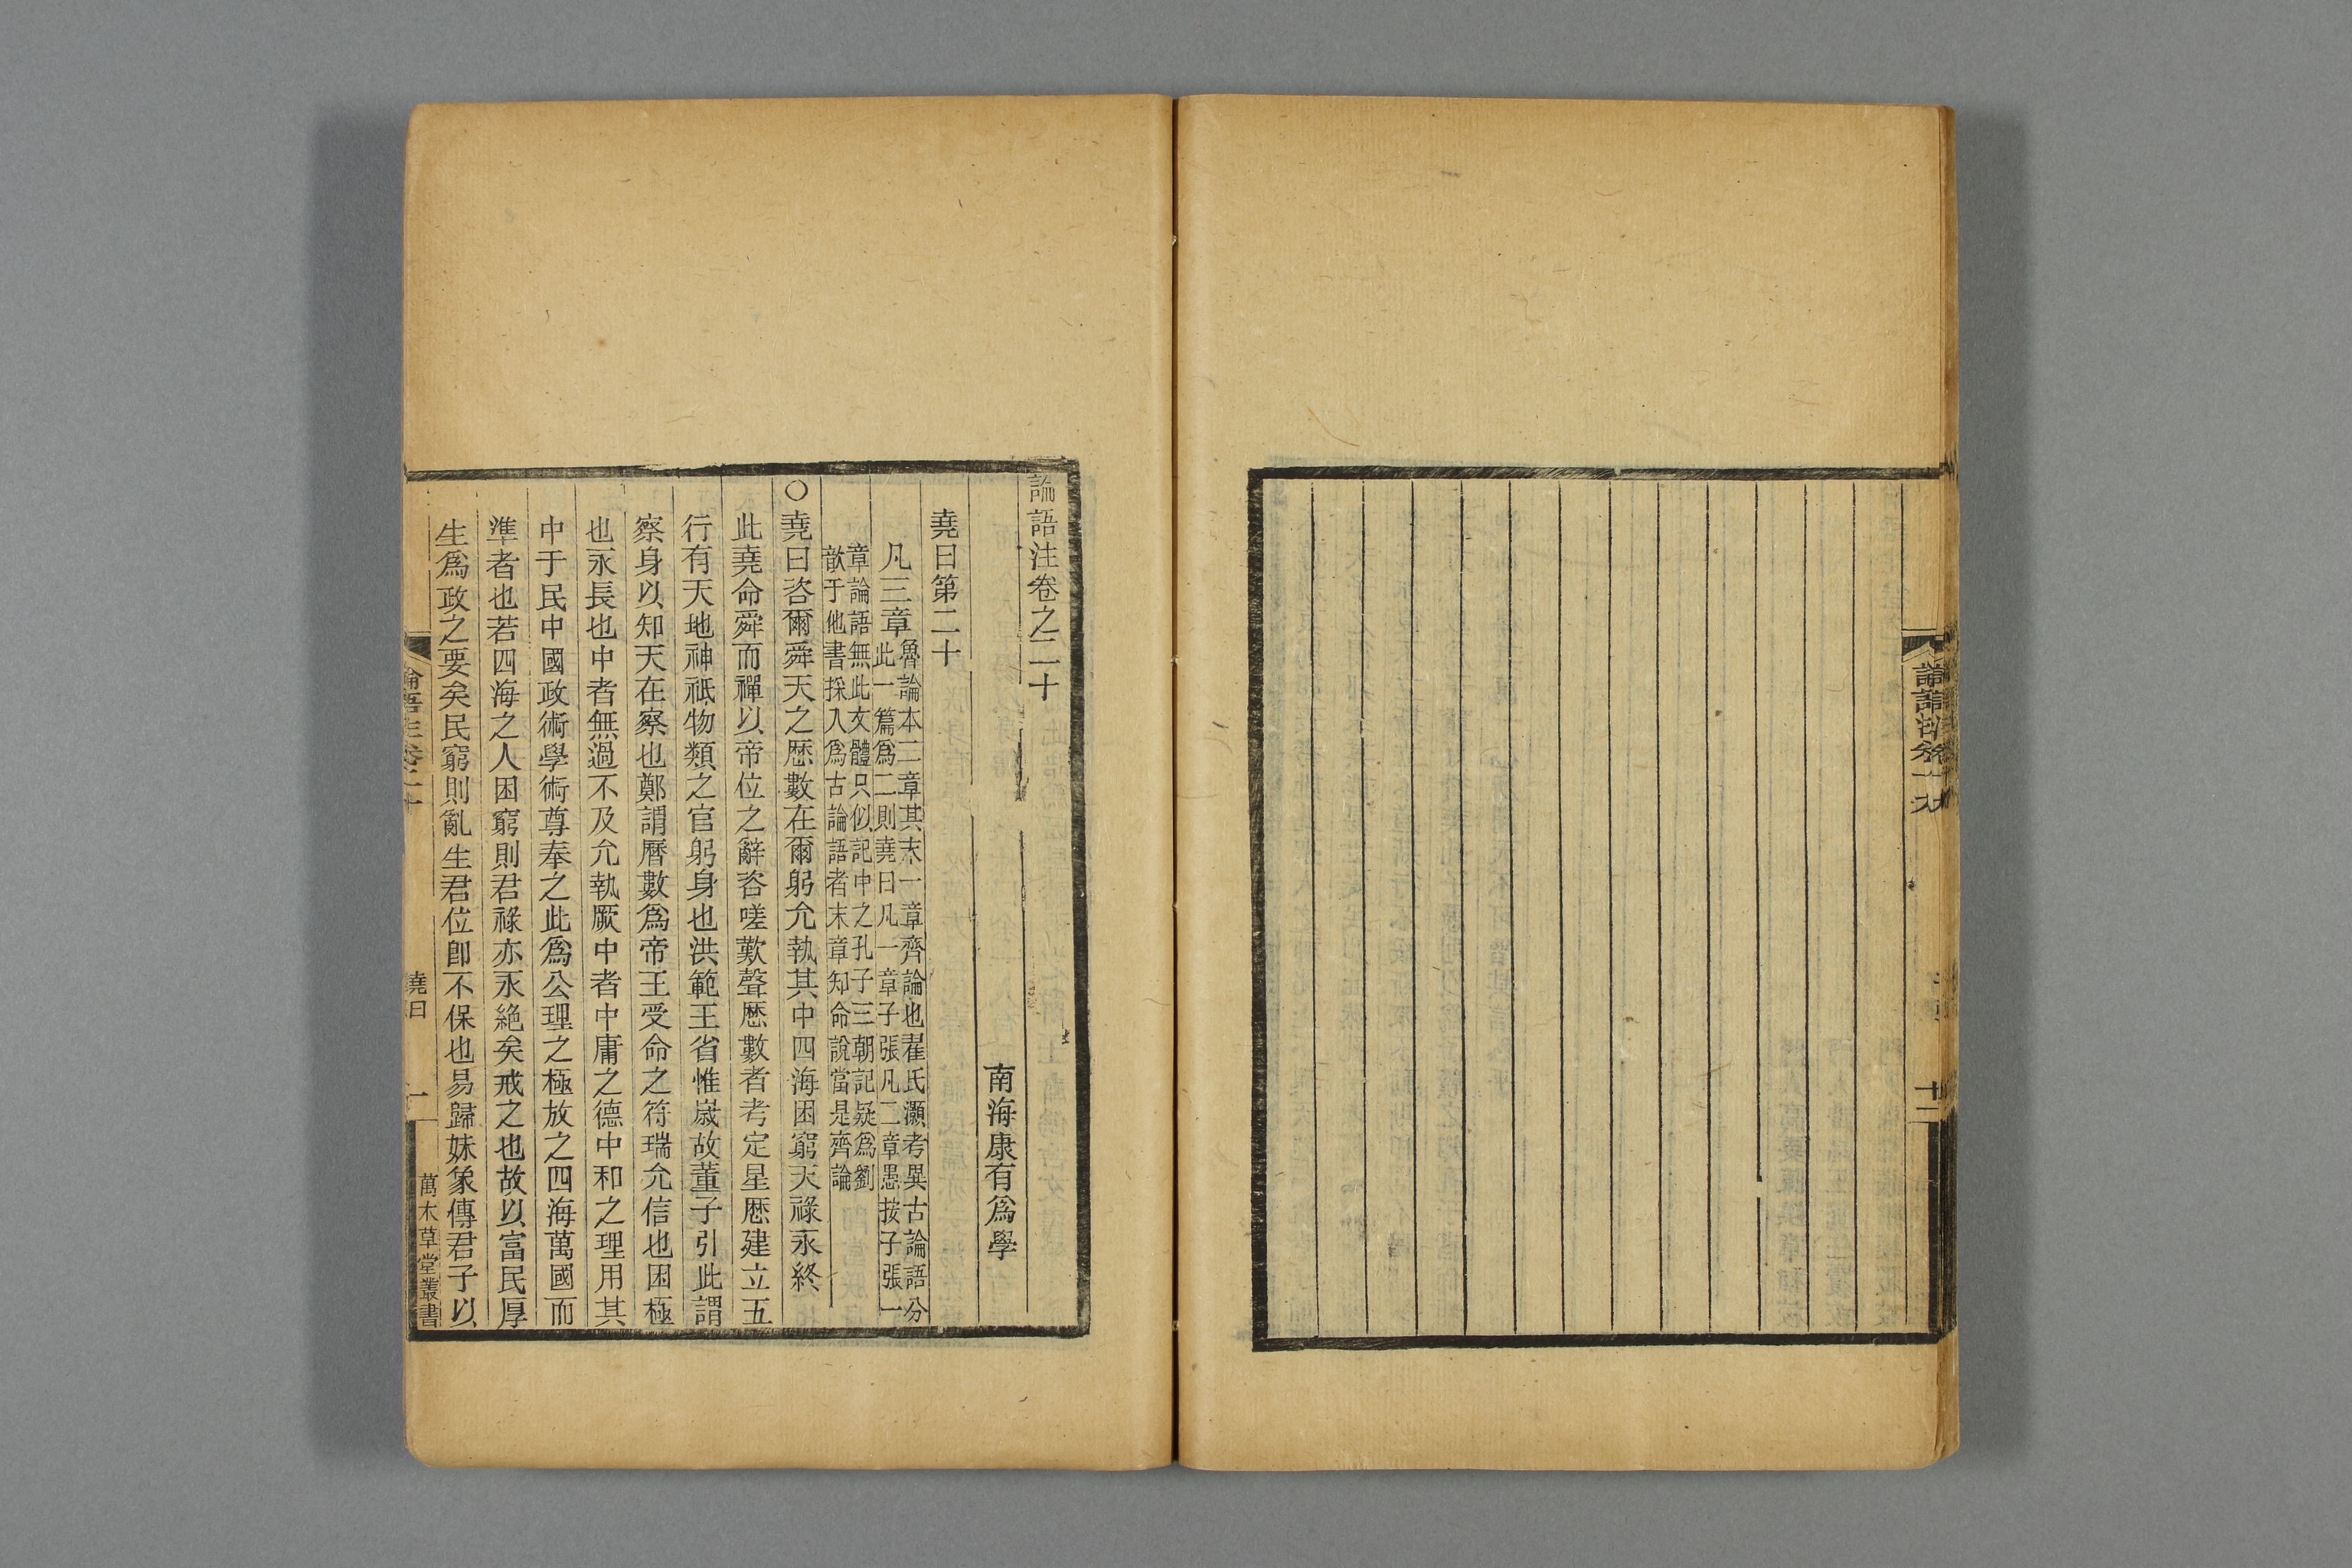 論語注卷之二十
南海康有爲學
堯曰第二十
凡三章
魯論本二章其末一章齊論也翟氏灝考異古論語分
此一篇爲二則堯曰凡一章子張凡二章愚按子張一
章論語無此文體只似記中之孔子三朝記疑爲劉
歆于他書採入爲古論語者末章知命說當是齊論
○堯曰咨爾舜天之厯數在爾躬允執其中四海困窮天祿永終
此堯命舜而禪以帝位之辭咨嗟歎聲厯數者考定星厯建立五
行有天地神祇物類之官躬身也洪範王省惟歲故董子引此謂
察身以知天在察也鄭謂曆數爲帝王受命之符瑞允信也困極
也永長也中者無過不及允執厥中者中庸之德中和之理用其
中于民中國政術學術尊奉之此爲公理之極放之四海萬國而
準者也若四海之人困窮則君祿亦永絕矣戒之也故以富民厚
生爲政之要矣民窮則亂生君位卽不保也易歸妹象傳君子以
論語注卷二十
堯曰
一
萬木草堂叢書
論語注卷十九
十二